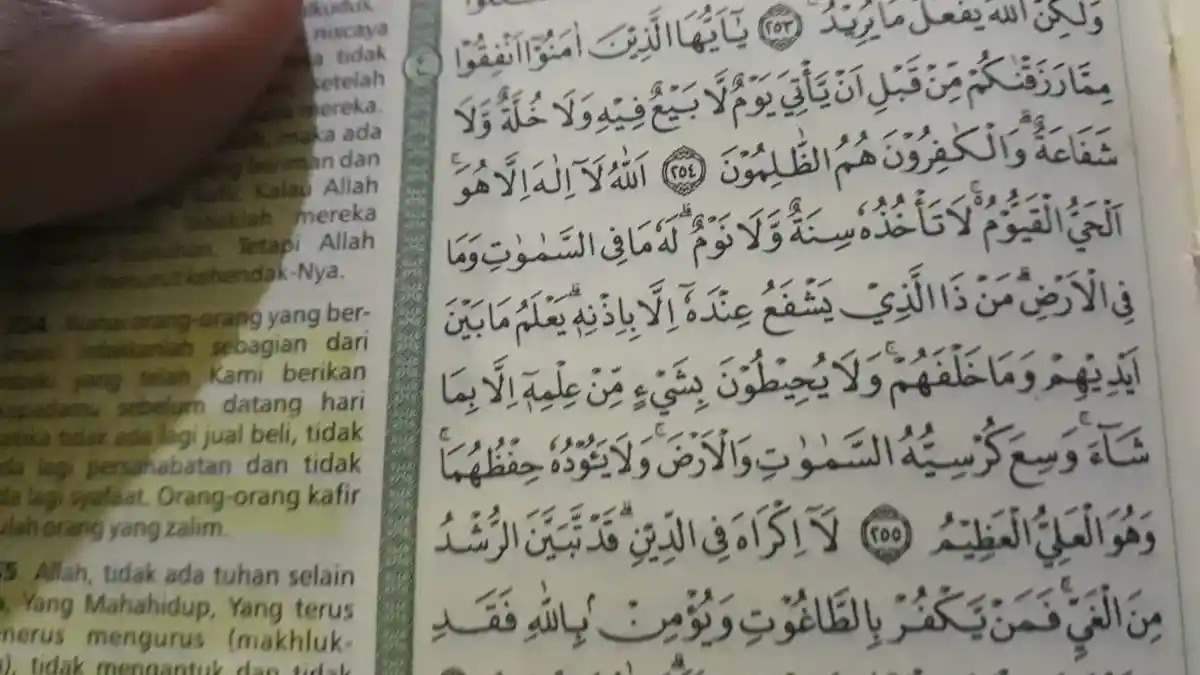 وَلٰكِنَّ اللّٰهَ يَفْعَلُ مَا يُرِيْدُ ࣖ ٢٥٣ يٰٓاَيُّهَا الَّذِيْنَ اٰمَنُوْٓا اَنْفِقُوْا
مِمَّا رَزَقْنٰكُمْ مِّنْ قَبْلِ اَنْ يَّأْتِيَ يَوْمٌ لَّا بَيْعٌ فِيْهِ وَلَا خُلَّةٌ وَّلَا
شَفَاعَةٌ ۗوَالْكٰفِرُوْنَ هُمُ الظّٰلِمُوْنَ ٢٥٤ اَللّٰهُ لَآ اِلٰهَ اِلَّا هُوَۚ
اَلْحَيُّ الْقَيُّوْمُ ەۚ لَا تَأْخُذُهٗ سِنَةٌ وَّلَا نَوْمٌۗ لَهٗ مَا فِى السَّمٰوٰتِ وَمَا
فِى الْاَرْضِۗ مَنْ ذَا الَّذِيْ يَشْفَعُ عِنْدَهٗٓ اِلَّا بِاِذْنِهٖۗ يَعْلَمُ مَا بَيْنَ
اَيْدِيْهِمْ وَمَا خَلْفَهُمْۚ وَلَا يُحِيْطُوْنَ بِشَيْءٍ مِّنْ عِلْمِهٖٓ اِلَّا بِمَا
شَاۤءَۚ وَسِعَ كُرْسِيُّهُ السَّمٰوٰتِ وَالْاَرْضَۚ وَلَا يَـُٔوْدُهٗ حِفْظُهُمَاۚ
وَهُوَ الْعَلِيُّ الْعَظِيْمُ ٢٥٥ لَآ اِكْرَاهَ فِى الدِّيْنِۗ قَدْ تَّبَيَّنَ الرُّشْدُ
مِنَ الْغَيِّۚ فَمَنْ يَّكْفُرْ بِالطَّاغُوْتِ وَيُؤْمِنْۢ بِاللّٰهِ فَقَدِ
niscaya
tidak
setelah
mereka.
maka ada
beriman dan
Kalau Allah
mereka
Tetapi Allah
menurut kehendak-Nya.
orang-orang yang ber-
sebagian dari
yang telah Kami berikan
kepadamu sebelum datang hari
tidak ada lagi jual beli, tidak
lagi persahabatan dan tidak
lagi syafaat. Orang-orang kafir
orang yang zalim.
Allah, tidak ada tuhan selain
Yang Mahahidup, Yang terus
menerus mengurus (makhluk-
tidak mengantuk dan tidak